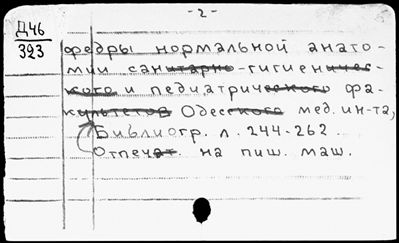 - 2 -
Д46
323
федры нормальной анато-
мии санитарно-гигиеничес-
кого и педиатрического фа-
культетов Одесского мед. ин-та,
Библиогр. л. 244-262.
Отпечат на пиш. маш.